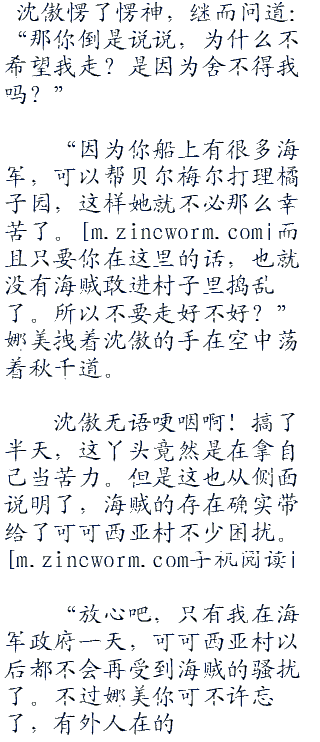 沈傲愣了愣神，继而问道：
“那你倒是说说，为什么不
希望我走？是因为舍不得我
吗？”
“因为你船上有很多海
军，可以帮贝尔梅尔打理橘
子园，这样她就不必那么幸
苦了。[m.zincworm.com|而
且只要你在这里的话，也就
没有海贼敢进村子里捣乱
了。所以不要走好不好？”
娜美拽着沈傲的手在空中荡
着秋千道。
沈傲无语哽咽啊！搞了
半天，这丫头竟然是在拿自
己当苦力。但是这也从侧面
说明了，海贼的存在确实带
给了可可西亚村不少困扰。
[m.zincworm.com手机阅读|
“放心吧，只有我在海
军政府一天，可可西亚村以
后都不会再受到海贼的骚扰
了。不过娜美你可不许忘
了，有外人在的